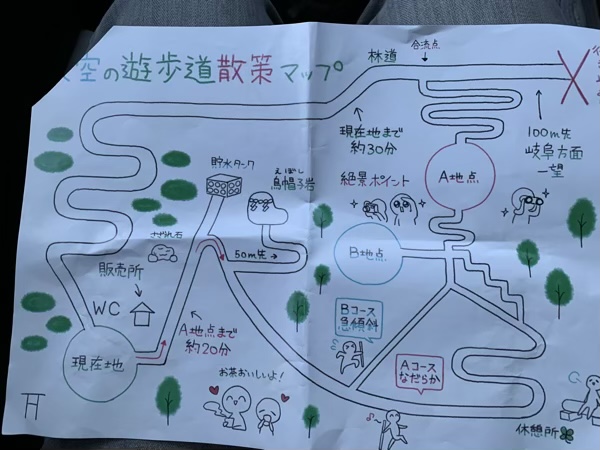 空の遊歩道散策マップ
林道
合流点
現在地まで
約30分
100m先
岐阜方面
一望
貯水タンク
えぼし
烏帽子岩
絶景ポイント
A地点
さざれ石
50m先→
B地点
販売所
WC
A地点まで
約20分
Bコース
急傾斜
現在地
Aコース
なだらか
お茶おいしいよ!
休憩所